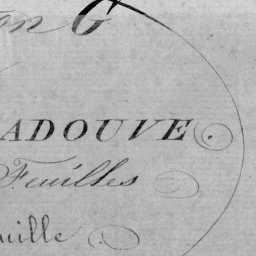 on G
ADOUVE.
Feuilles
uille